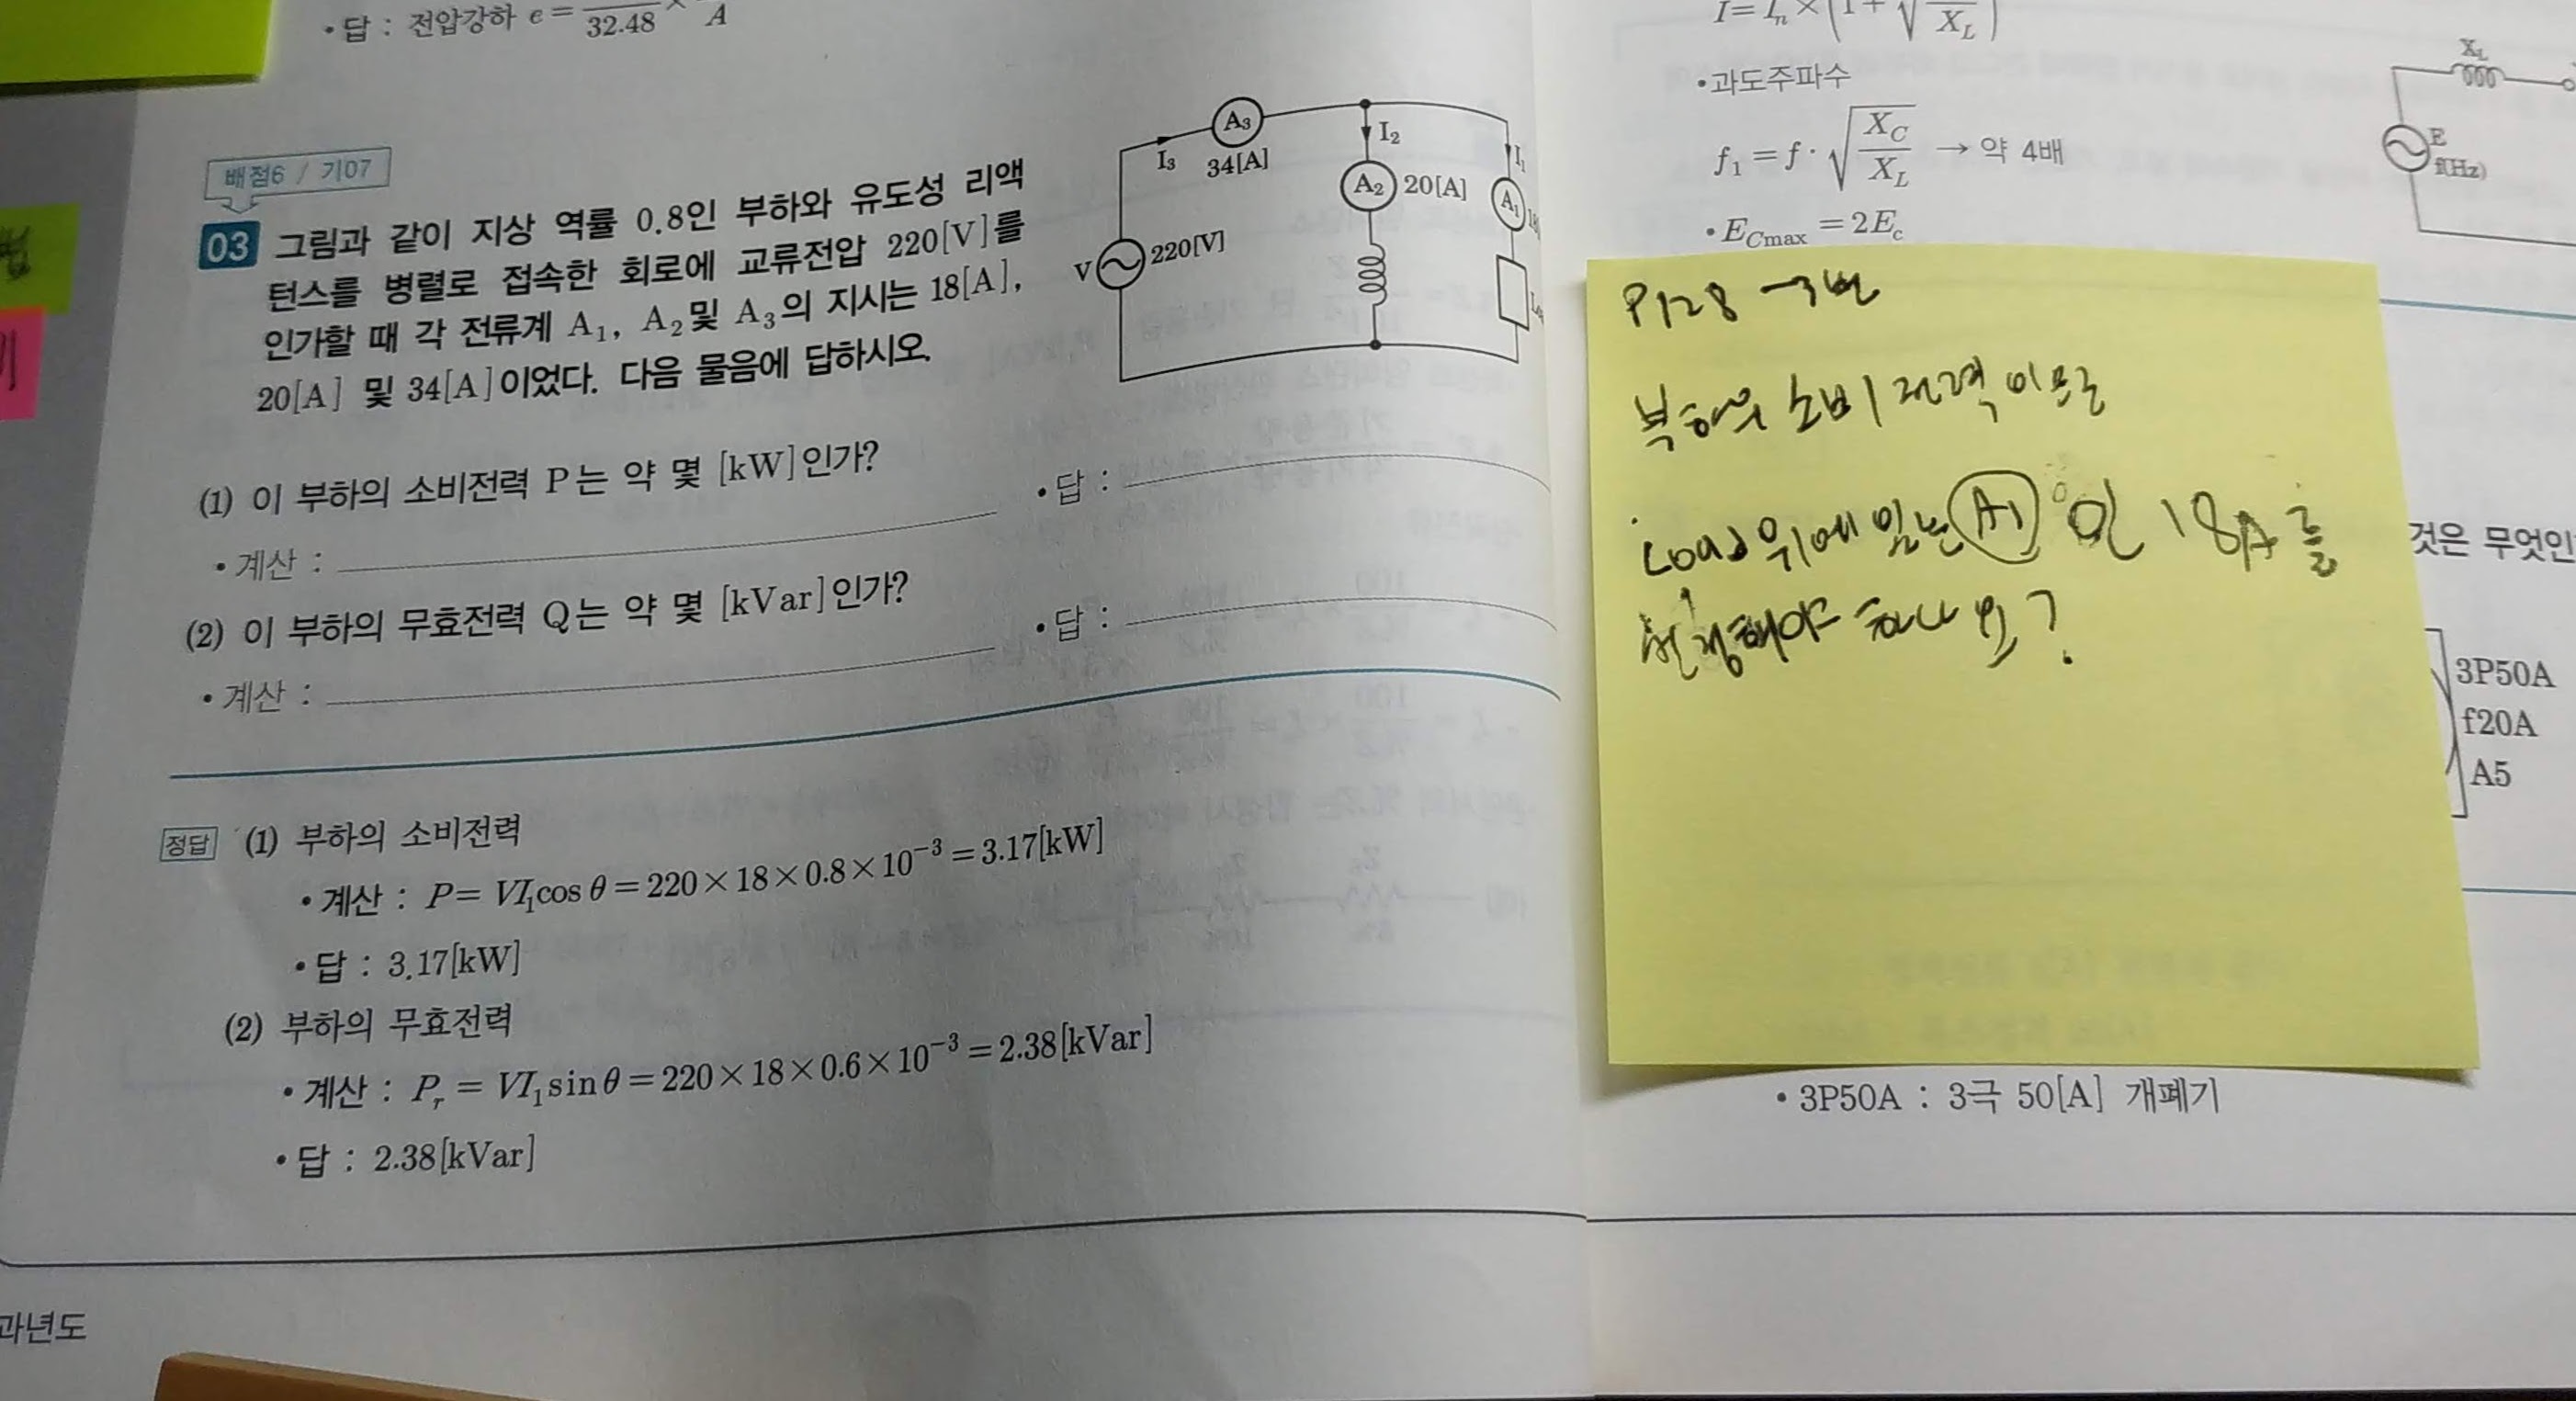 • 답 : 전압강하 e = ― 32.48 × A
배점6 / 기07
03 그림과 같이 지상 역률 0.8인 부하와 유도성 리액
턴스를 병렬로 접속한 회로에 교류전압 220[V]를
인가할 때 각 전류계 A₁, A₂및 A₃의 지시는 18[A],
20[A] 및 34[A]이었다. 다음 물음에 답하시오.
A₃
I₃ 34[A]
I₂
I₁
A₂ 20[A]
A₁
V 220[V]
(1) 이 부하의 소비전력 P는 약 몇 [kW]인가?
• 계산 :
• 답 :
(2) 이 부하의 무효전력 Q는 약 몇 [kVar]인가?
• 계산 :
• 답 :
정답 (1) 부하의 소비전력
• 계산 : P = VI₁cos θ = 220×18×0.8×10⁻³ = 3.17[kW]
• 답 : 3.17[kW]
(2) 부하의 무효전력
• 계산 : Pᵣ = VI₁sin θ = 220×18×0.6×10⁻³ = 2.38[kVar]
• 답 : 2.38[kVar]
과년도
• 과도주파수
f₁ = f · √(X_C / X_L) → 약 4배
• E_Cmax = 2E_c
X_L
E
f(Hz)
P128 → 3번
부하의 소비 전력 이므로
Load 위에 있는 A1 인 18A를
선정해야 하나요?
것은 무엇인
3P50A
f20A
A5
• 3P50A : 3극 50[A] 개폐기